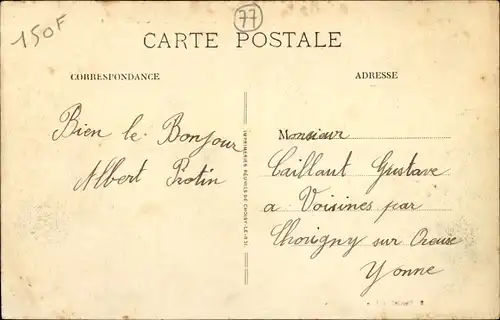 150F
77
CARTE POSTALE
CORRESPONDANCE
ADRESSE
Bien le Bonjour
Albert Protin
IMPRIMERIES RÉUNIES DE CHOISY-LE-ROI
Monsieur
Caillaut Gustave
a Voisines par
Thorigny sur Oreuse
Yonne